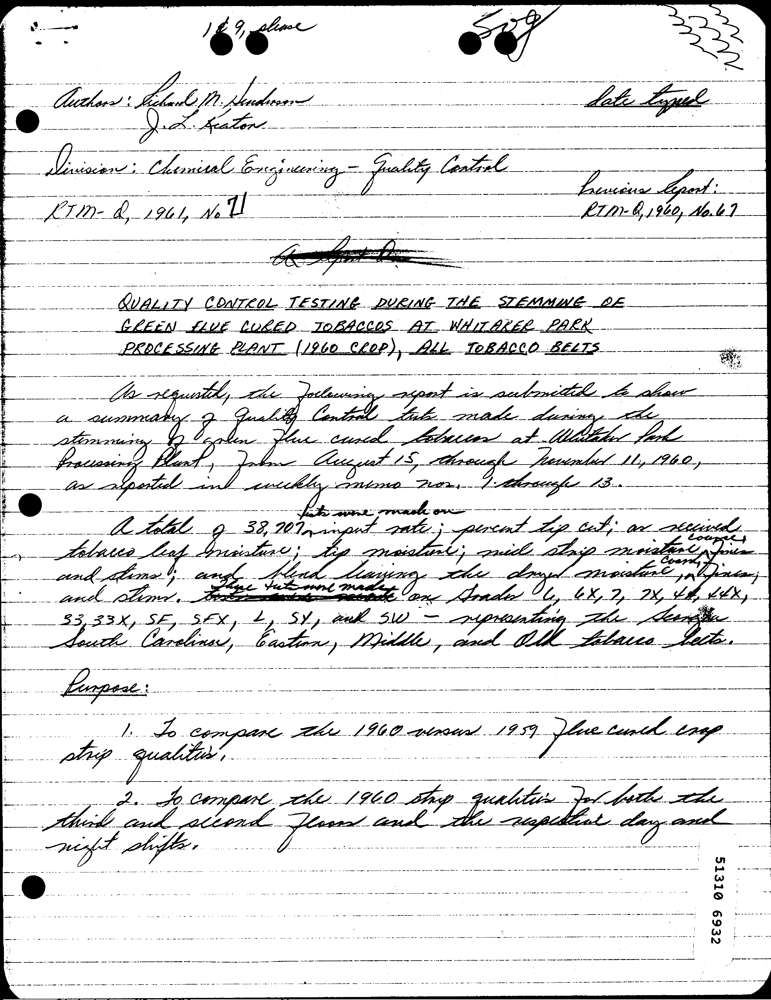 1 & 9, please
509
Authors: Richard M. Henderson
date typed
J. L. Keaton
Division: Chemical Engineering - Quality Control
Previous Report:
RTM-Q, 1961, No 71
RTM-Q, 1960, No. 67
A Report On
QUALITY CONTROL TESTING DURING THE STEMMING OF
GREEN FLUE CURED TOBACCOS AT WHITAKER PARK
PROCESSING PLANT (1960 CROP), ALL TOBACCO BELTS
As requested, the following report is submitted to show
a summary of Quality Control tests made during the
stemming of green flue cured tobaccos at Whitaker Park
Processing Plant, from August 15, through November 11, 1960,
as reported in weekly memo nos. 1 through 13.
tests were made on
A total of 38,707 input rate; percent tip cut; as received
tobacco leaf moisture; tip moisture; mid strip moisture, fines
and stems; and blend leaving the dryer moisture, fines,
and stems. These tests were made on Grades 6, 6X, 7, 7X, 44, 44X,
33, 33X, SF, SFX, L, SY, and SW - representing the Georgia
South Carolina, Eastern, Middle, and Old tobacco belts.
Purpose:
1. To compare the 1960 versus 1959 flue cured crop
strip qualities.
2. To compare the 1960 strip qualities for both the
third and second floors and the respective day and
night shifts.
51310 6932